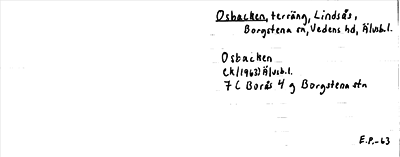 Osbacken, terräng, Lindsås,
Borgstena sn, Vedens hd, Älvsb.l.
Osbacken
Ek/1963) Älvsb.l.
7 C Borås 4 g Borgstena stn
E.P.-63